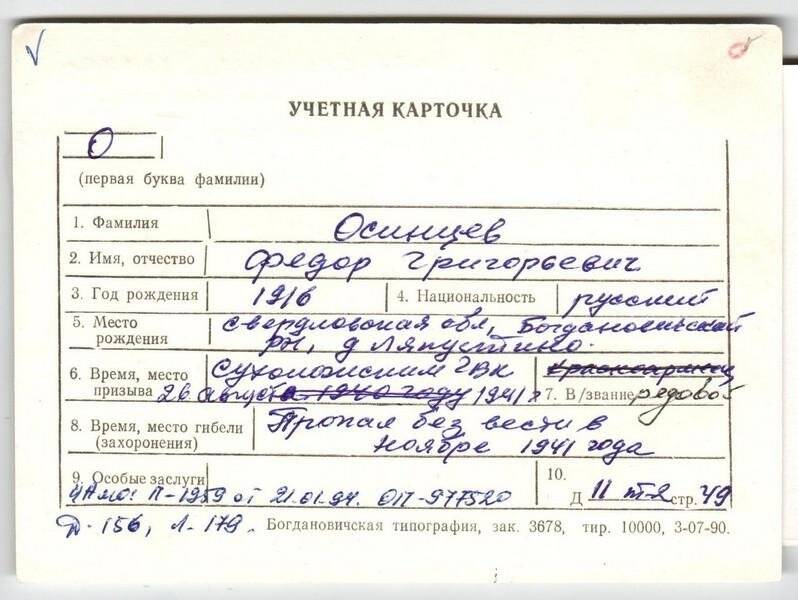 УЧЕТНАЯ КАРТОЧКА
О
(первая буква фамилии)
1. Фамилия Осинцев
2. Имя, отчество Федор Григорьевич
3. Год рождения 1916 4. Национальность русский
5. Место рождения Свердловская обл, Богдановичский
рн, д Ляпустино.
6. Время, место призыва Сухоложским ГВК
26 августа 1940 году 1941 г
7. В/звание Красноармеец рядовой
8. Время, место гибели (захоронения) Пропал без вести в
ноябре 1941 года
9. Особые заслуги
ЦАМО: П-1959 от 21.01.94. ОП-977520
10.
Д 11 т-2 стр. 49
Д-156, Л-179.
Богдановичская типография, зак. 3678, тир. 10000, 3-07-90.